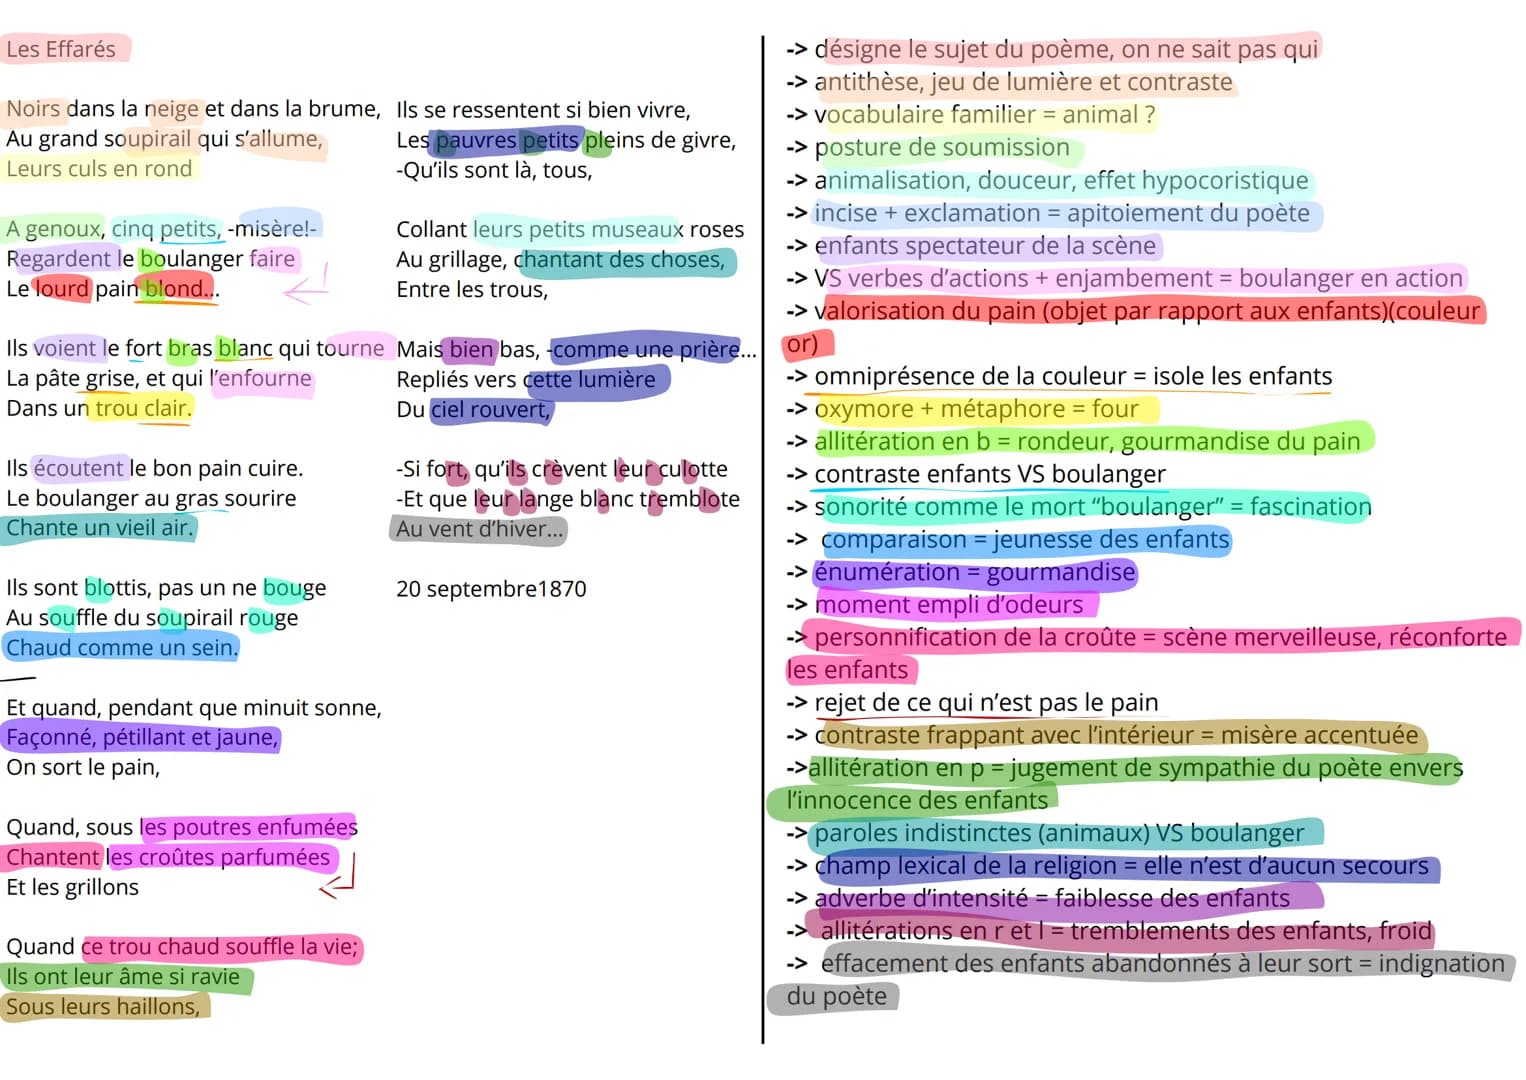 Les Effarés
Noirs dans la neige et dans la brume,
Au grand soupirail qui s’allume,
Leurs culs en rond
A genoux, cinq petits, -misère!-
Regardent le boulanger faire
Le lourd pain blond...
Ils voient le fort bras blanc qui tourne
La pâte grise, et qui l’enfourne
Dans un trou clair.
Ils écoutent le bon pain cuire.
Le boulanger au gras sourire
Chante un vieil air.
Ils sont blottis, pas un ne bouge
Au souffle du soupirail rouge
Chaud comme un sein.
Et quand, pendant que minuit sonne,
Façonné, pétillant et jaune,
On sort le pain,
Quand, sous les poutres enfumées
Chantent les croûtes parfumées
Et les grillons
Quand ce trou chaud souffle la vie;
Ils ont leur âme si ravie
Sous leurs haillons,
Ils se ressentent si bien vivre,
Les pauvres petits pleins de givre,
-Qu’ils sont là, tous,
Collant leurs petits museaux roses
Au grillage, chantant des choses,
Entre les trous,
Mais bien bas, -comme une prière...
Repliés vers cette lumière
Du ciel rouvert,
-Si fort, qu’ils crèvent leur culotte
-Et que leur lange blanc tremblote
Au vent d’hiver...
20 septembre1870
-> désigne le sujet du poème, on ne sait pas qui
-> antithèse, jeu de lumière et contraste
-> vocabulaire familier = animal ?
-> posture de soumission
-> animalisation, douceur, effet hypocoristique
-> incise + exclamation = apitoiement du poète
-> enfants spectateur de la scène
-> VS verbes d’actions + enjambement = boulanger en action
-> valorisation du pain (objet par rapport aux enfants)(couleur
or)
-> omniprésence de la couleur = isole les enfants
-> oxymore + métaphore = four
-> allitération en b = rondeur, gourmandise du pain
-> contraste enfants VS boulanger
-> sonorité comme le mort “boulanger” = fascination
-> comparaison = jeunesse des enfants
-> énumération = gourmandise
-> moment empli d’odeurs
-> personnification de la croûte = scène merveilleuse, réconforte
les enfants
-> rejet de ce qui n’est pas le pain
-> contraste frappant avec l’intérieur = misère accentuée
->allitération en p = jugement de sympathie du poète envers
l’innocence des enfants
-> paroles indistinctes (animaux) VS boulanger
-> champ lexical de la religion = elle n’est d’aucun secours
-> adverbe d’intensité = faiblesse des enfants
-> allitérations en r et l = tremblements des enfants, froid
-> effacement des enfants abandonnés à leur sort = indignation
du poète